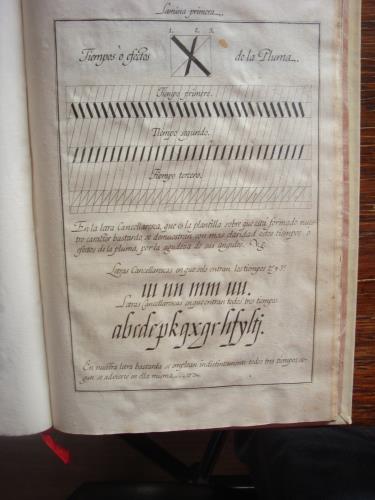 Lamina primera.
1. 2. 3.
Tiempos o efectos de la Pluma.
Tiempo primero.
Tiempo segundo.
Tiempo tercero.
En la letra Cancellaresca, que es la plantilla sobre que está formado nues-
tro caracter bastardo se demuestran con mas claridad estos tiempos o
efectos de la pluma, por la agudeza de sus angulos.
Letras Cancellarescas en que solo entran los tiempos 2º y 3º
ııı uu mm uu.
Letras Cancellarescas en que entran todos tres tiempos.
abcdepkqxgrhfylj.
En nuestra letra bastarda se emplean indistintamente todos tres tiempos, se-
gun se advierte en ella misma.